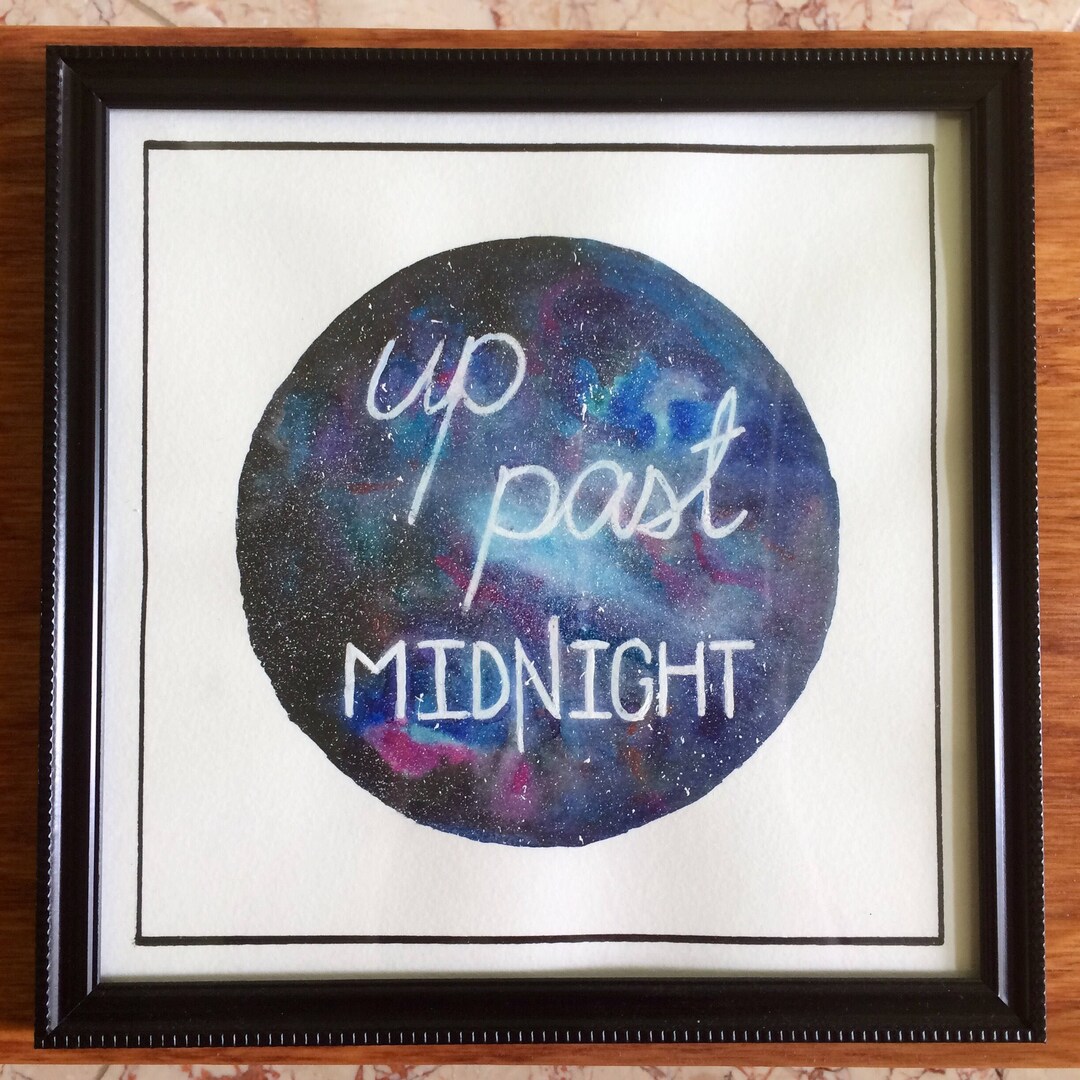 up
past
MIDNIGHT